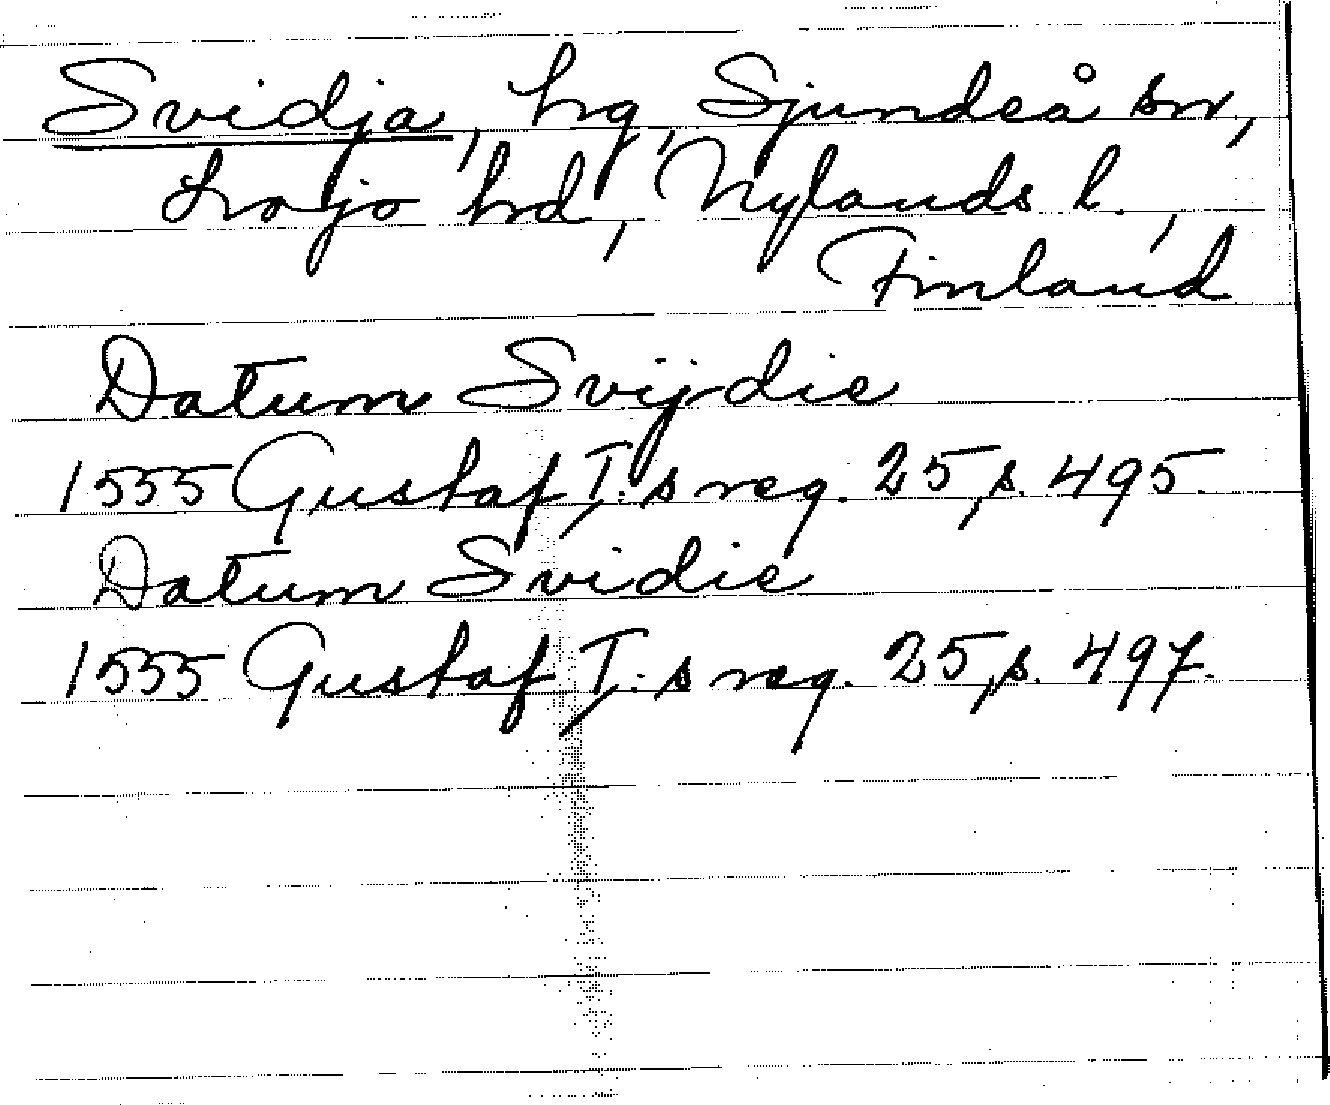 Svidja, hrg, Sjundeå sn,
Lojo hrd, Nylands l.,
Finland
Datum Svijdie
1555 Gustaf I:s reg. 25, s. 495.
Datum Svidie
1555 Gustaf I:s reg. 25, s. 497.